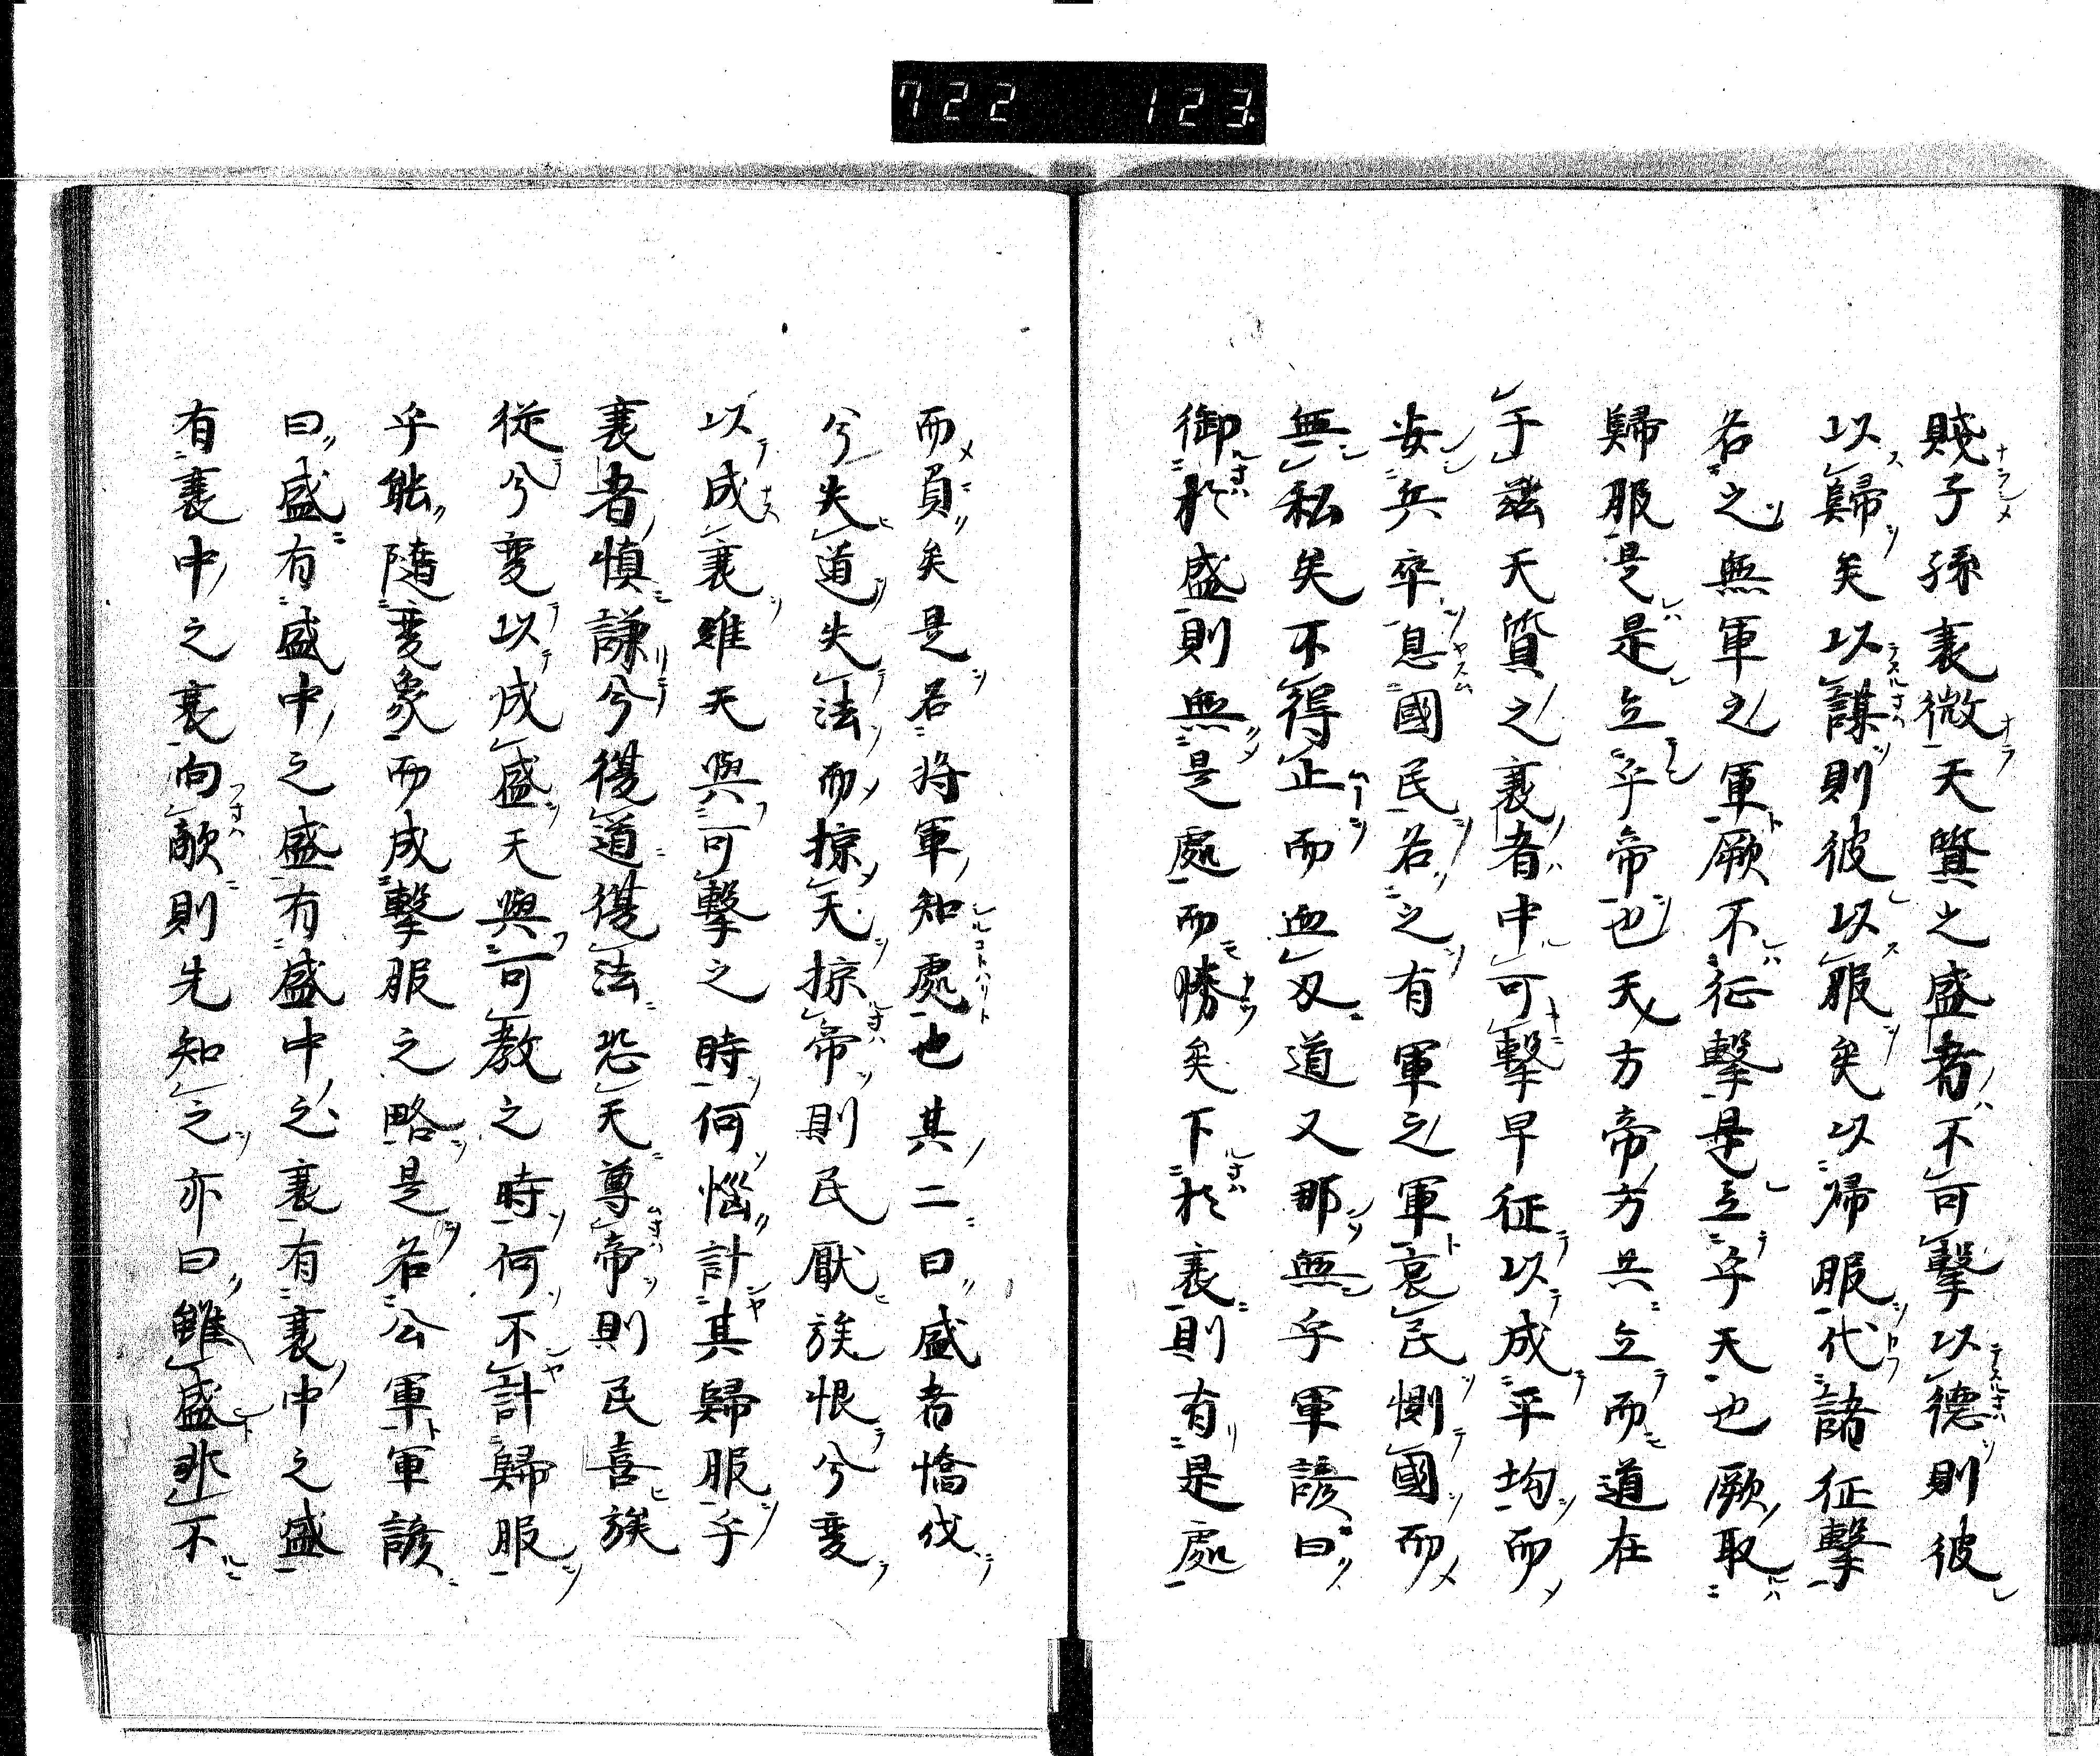 722 123
賤子孫衰微天質之盛者不可擊以德則彼
以歸矣以謀則彼以服矣以歸服代諸征擊
名之無軍之軍厥不征擊是立乎天也厥取
歸服是是立乎帝也天方帝方共立而道在
于玆天質之衰者中可擊早征以成平均而
安兵卒息國民名之有軍之軍哀民惻國而
無私矣不得止而血刄道又那無乎軍諺曰
御於盛則無是處而勝矣下於衰則有是處
而負矣是名将軍知處也其二曰盛者憍伐
兮失道失法而掠天掠帝則民厭族恨兮变
以成衰雖天與可擊之時何惱計其歸服乎
衰者慎謙兮得道得法恐天尊帝則民喜族
従兮变以成盛天與可教之時何不計歸服
乎能随变象而成擊服之略是名公軍軍諺
曰盛有盛中之盛有盛中之衰有衰中之盛
有衰中之衰向敵則先知之亦曰雖盛非不